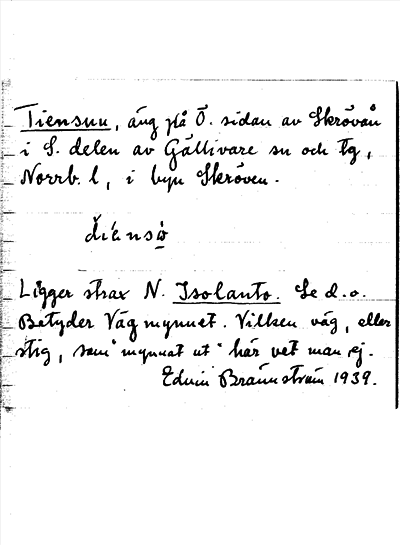 Tiensuu, äng på Ö. sidan av Skröven
i S. delen av Gällivare sn och tg,
Norrb. l, i byn Skröven.
Ligger strax N. Isolanto. Se d. o.
Betyder Vägmynnet. Vilken väg, eller
stig, som mynnat ut här vet man ej.
Edvin Brännström 1939.